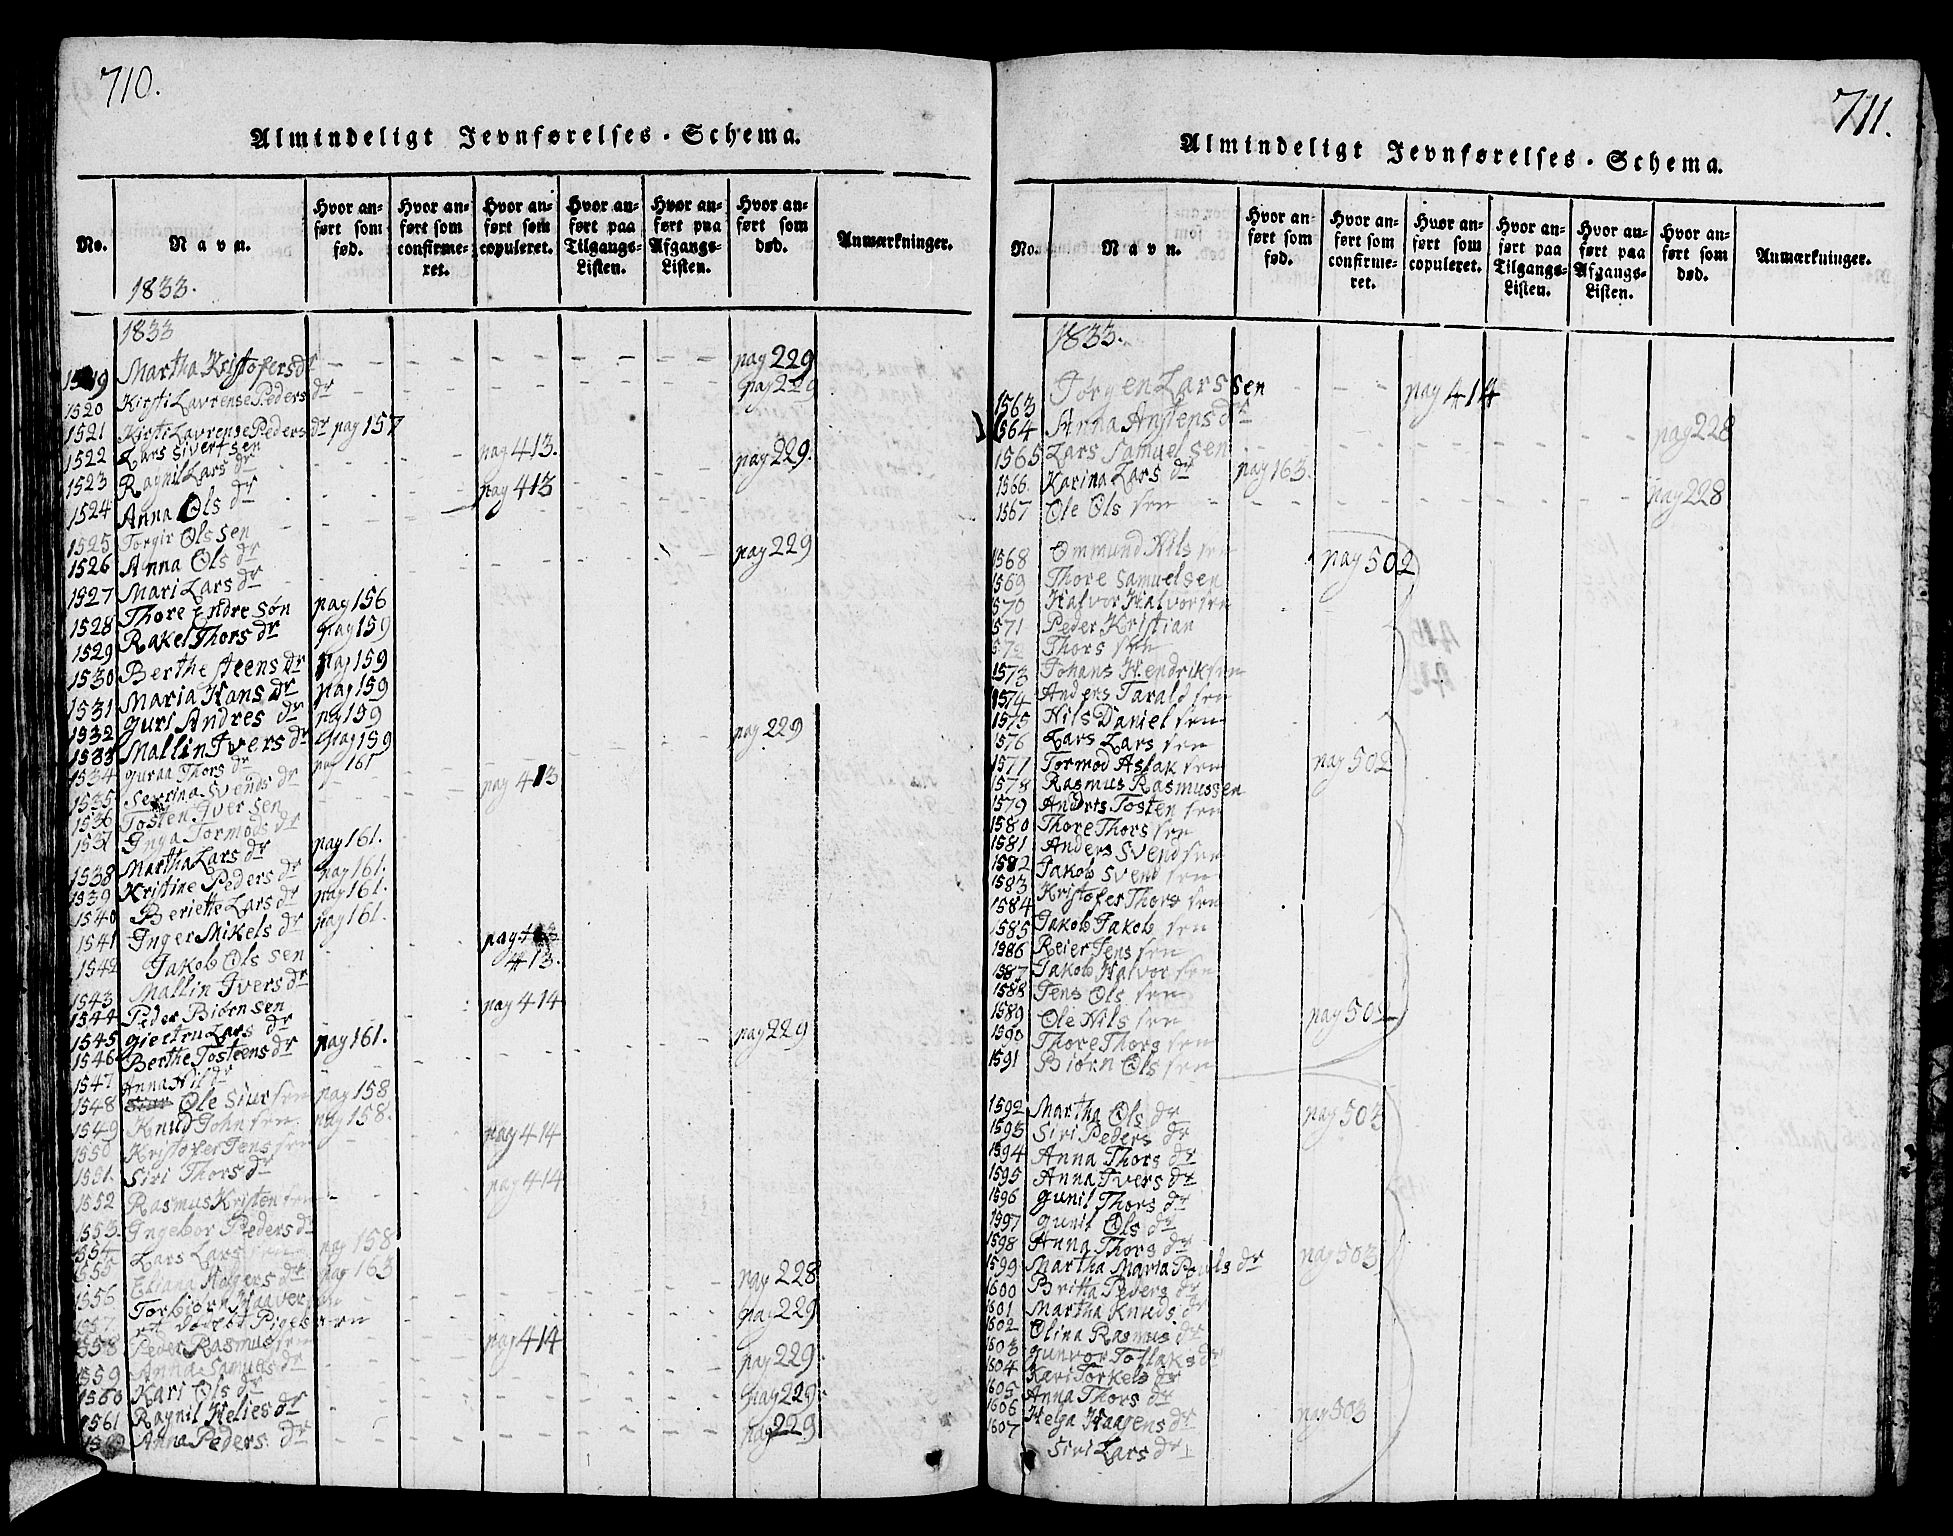 710.
Almindeligt Jevnførelses-Schema.
No.
Navn.
Hvor anført som fød.
Hvor anført som confirmeret.
Hvor anført som copuleret.
Hvor anført paa Tilgangs-Listen.
Hvor anført paa Afgangs-Listen.
Hvor anført som død.
Anmærkninger.
1833.
1833
1519 Martha Kristofersdr pag 229
1520 Kirsti Lavrense Pedersdr pag 229
1521 Kirsti Lavrense Peders dr pag 157
1522 Lars Sivertsen pag 413. pag 229.
1523 Ragnil Lars dr pag 413
1524 Anna Ols dr
1525 Torgir Ols sen pag 229
1526 Anna Ols dr
1527 Mari Lars dr
1528 Thore Endre søn pag 156
1529 Rakel Thors dr pag 159
1530 Berthe Steens dr pag 159
1531 Maria Hans dr pag 159
1532 Guri Andres dr pag 159 pag 229
1533 Mallin Ivers dr pag 159
1534 Guraa Thors dr pag 161 pag 413
1535 Serrina Svends dr
1536 Tosten Iver sen
1537 Inga Tormods dr pag 161.
1538 Martha Lars dr pag 161.
1539 Kristine Peders dr pag 161.
1540 Beriette Lars dr pag 161.
1541 Inger Mikels dr pag 413.
1542 Jakob Ols sen
1543 Mallin Ivers dr pag 414
1544 Peder Biørnsen
1545 Giertru Lars dr pag 161. pag 229
1546 Berthe Tosteens dr
1547 Anna Nil dr
1548 Ole Siur sen pag 158
1549 Knud John sen pag 158.
1550 Kristofer Jens sen pag 414
1551. Siri Thors dr pag 414
1552 Rasmus Kristen sen
1553. Ingebor Peders dr
1554 Lars Lars sen pag 158
1555 Eliana Holgers dr pag 163 pag 228
1556 Torbiørn Haaver sen pag 229
1557 et dødfød Pigebarn
1558 Peder Rasmus sen pag 414
1559 Anna Samuels dr pag 229.
1560 Kari Ols dr pag 229.
1561 Ragnil Helies dr pag 229
Anna Peders dr
711.
Almindeligt Jevnførelses-Schema.
No.
Navn.
Hvor anført som fød.
Hvor anført som confirmeret.
Hvor anført som copuleret.
Hvor anført paa Tilgangs-Listen.
Hvor anført paa Afgangs-Listen.
Hvor anført som død.
Anmærkninger.
1833.
1563 Jørgen Lars sen pag 414
1564 Anna Anstens dr pag 228
1565 Lars Samuel sen
1566 Karina Lars dr pag 163.
1567 Ole Ols sen pag 228
1568 Ommund Nils sen pag 502
1569 Thore Samuelsen
1570 Halvor Halvorsen
571 Peder Kristian
572 Thors sen
1573 Johans Hendriksen
1574 Anders Tarald sen
1575 Nils Daniel sen
1576 Lars Lars sen
1577 Tormod Aslak sen pag 502
1578 Rasmus Rasmussen
1579 Anders Tosten sen
1580 Thore Thors sen
1581 Anders Svend sen
1582 Jakob Svend sen
1583 Kristofer Thors sen
1584
1585 Jakob Jakob sen
1586 Reier Jens sen
1587 Jakob Halvor sen
1588 Jens Ols sen
1589 Ole Nils sen pag 502
1590 Thore Thors sen
1591 Biørn Ols sen
1592 Martha Ols dr pag 503
1593 Siri Peders dr
1594 Anna Thors dr
1595 Anna Ivers dr
1596 Gunil Thors dr
1597 Gunil Ols dr
1598 Anna Thors dr
1599 Martha Maria Povls dr pag 503
1600 Britta Peders dr
1601 Martha Knuds dr
1602 Olina Rasmus dr
1603 Gunvor Toflaks dr
1604 Kari Torkels dr
1605 Anna Thors dr
1606 Helga Haagens dr pag 503
1607
Siri Lars dr